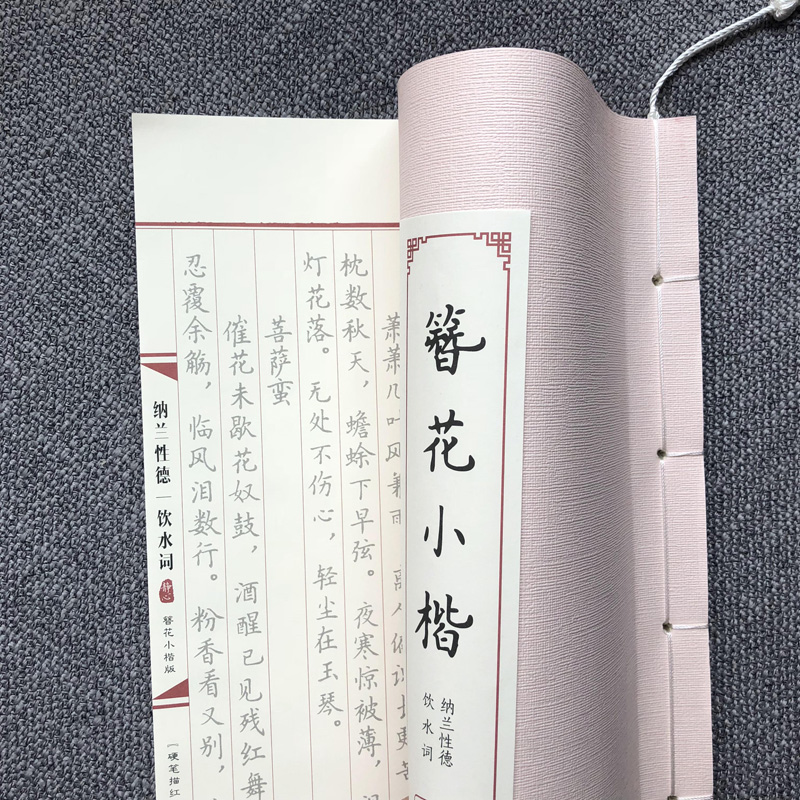 簪花小楷
纳兰性德
饮水词
萧萧几叶风兼雨
枕数秋天，蟾蜍下早弦。夜寒惊被薄，
灯花落。无处不伤心，轻尘在玉琴。
菩萨蛮
催花未歇花奴鼓，酒醒已见残红舞
忍覆余觞，临风泪数行。粉香看又别，
纳兰性德｜饮水词
静心
簪花小楷版
[硬笔描红